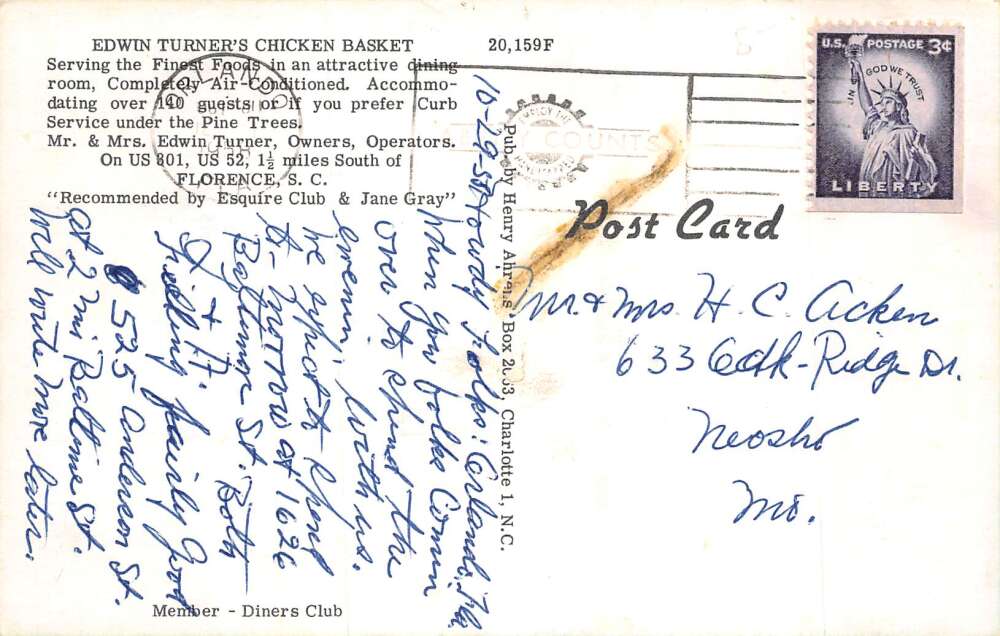 EDWIN TURNER'S CHICKEN BASKET
Serving the Finest Foods in an attractive dining
room, Completely Air-Conditioned. Accommo-
dating over 140 guests or if you prefer Curb
Service under the Pine Trees.
Mr. & Mrs. Edwin Turner, Owners, Operators.
On US 301, US 52, 1½ miles South of
FLORENCE, S. C.
"Recommended by Esquire Club & Jane Gray"
20,159F
ORLANDO
EMPLOY THE
COUNTS
U.S. POSTAGE 3¢
IN GOD WE TRUST
LIBERTY
Post Card
Pub. by Henry Ahrens Box 2033, Charlotte 1, N.C.
10-29- Howdy Folks: Orlando, Fla
When you folks Comin
over to spend the
evenin' with us.
We expect to spend
to-morrow at 1626
Baltimor St. Both
of + H. feeling fairly good
525 Anderson St.
at 2 mi Baltimor St.
Will write more later.
Mr. & Mrs. H. C. Acken
633 Oak-Ridge Dr.
Neosho
Mo.
Member - Diners Club